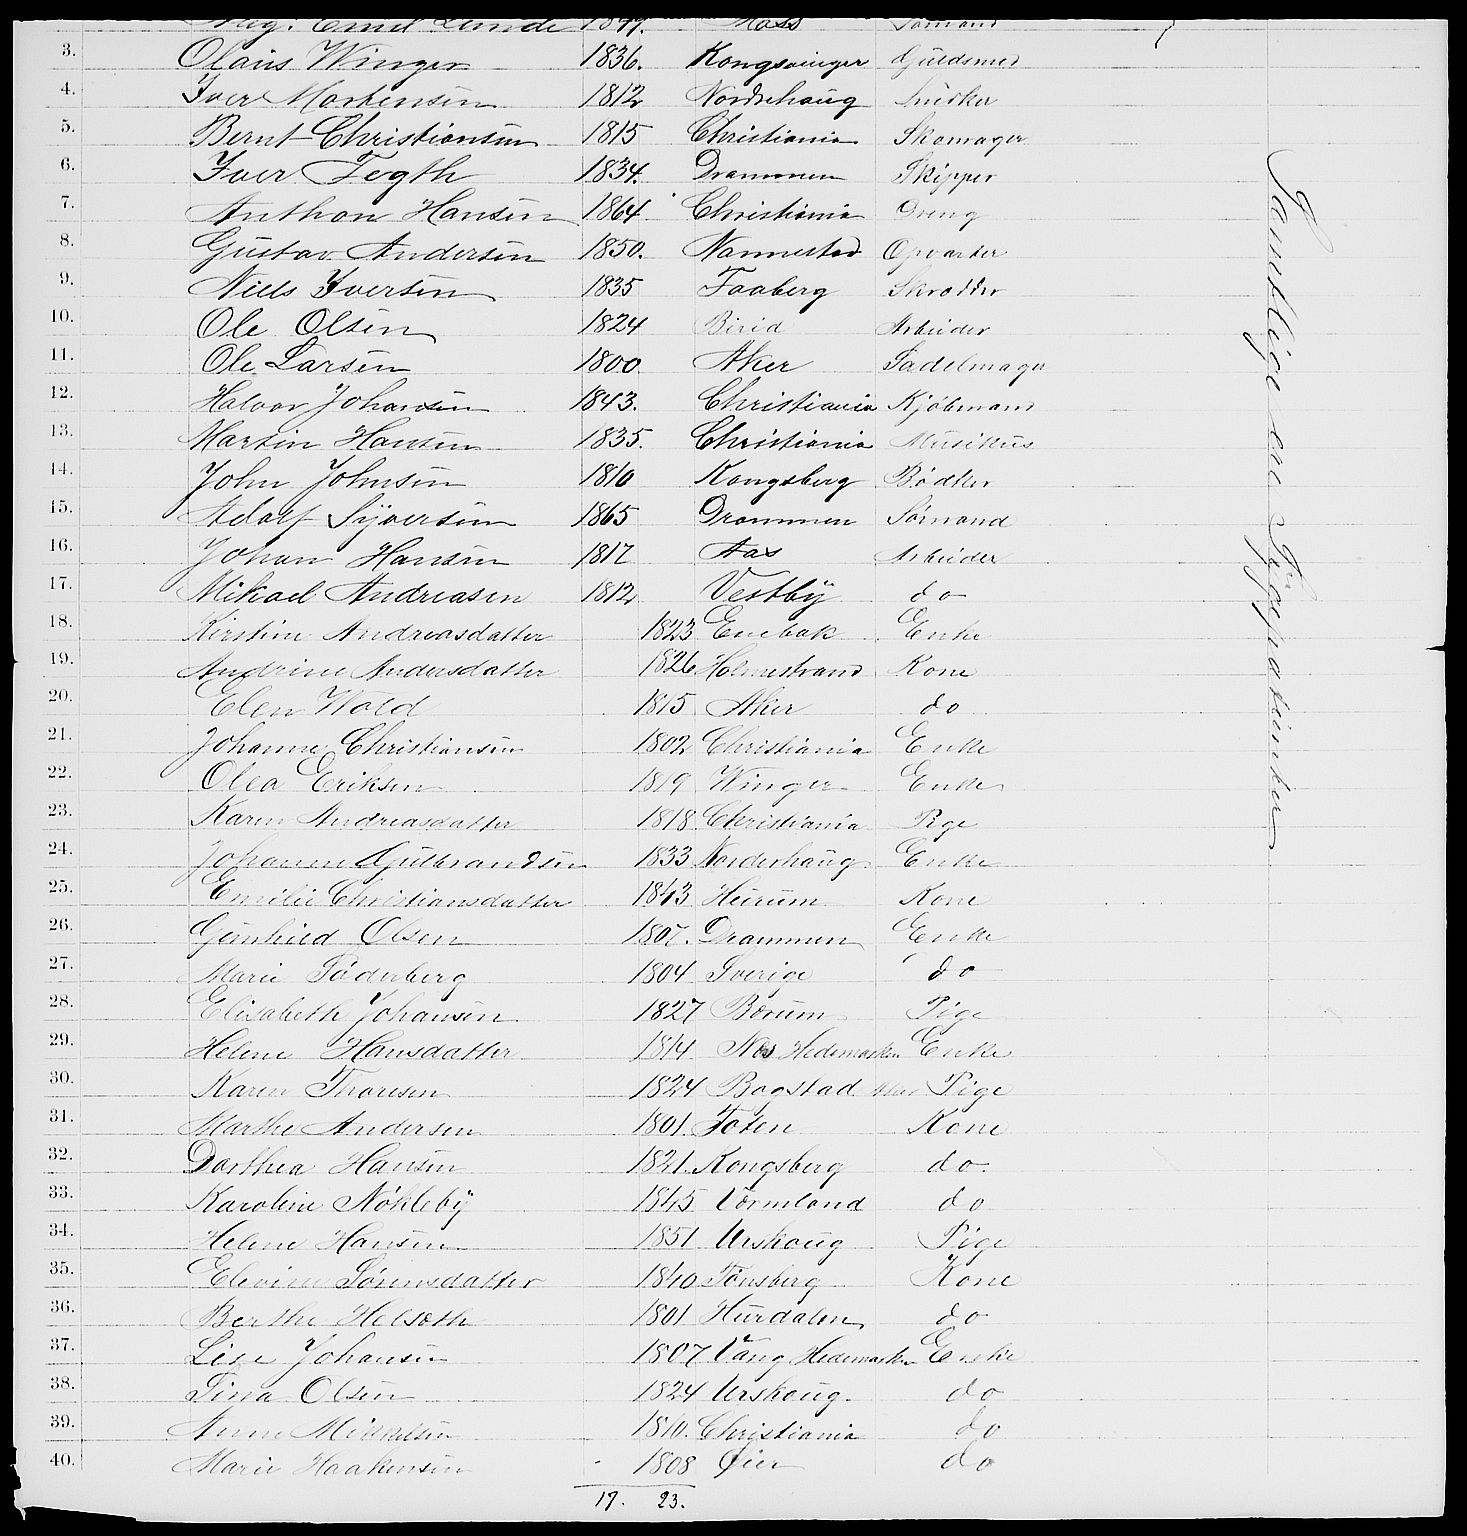 Aug. Emil Lunde 1849. Moss Sømand
3. Olaus Winger 1836. Kongsvinger Guldsmed
4. Iver Mortensen 1812 Nordrehaug Snedker
5. Bernt Christiansen 1815 Christiania Skomager
6. Iver Tegth 1834. Drammen Skipper
7. Anthon Hansen 1864. Christiania Dreng
8. Gustav Andersen 1850. Nannestad Opvarter
9. Niels Iversen 1835 Faaberg Skrædder
10. Ole Olsen 1824 Birid Arbeider
11. Ole Larsen 1800 Aker Sadelmager
12. Halvor Johansen 1843. Christiania Kjøbmand
13. Martin Hansen 1835. Christiania Musikus
14. John Johnsen 1810 Kongsberg Bødker
15. Adolf Syversen 1865 Drammen Sømand
16. Johan Hansen 1817 Aas Arbeider
17. Mikael Andreasen 1812 Vestby do
18. Kirstine Andreasdatter 1823 Enebak Enke
19. Andrine Andersdatter 1826 Holmestrand Kone
20. Elen Wold 1815 Aker do
21. Johanne Christiansen 1802 Christiania Enke
22. Olea Eriksen 1819 Winger Enke
23. Karen Andreasdatter 1818 Christiania Pige
24. Johanne Gulbrandsen 1833 Norderhaug Enke
25. Emilie Christiansdatter 1843 Hurum Kone
26. Gunhild Olsen 1807. Drammen Enke
27. Marie Søderberg 1804 Sverige do
28. Elisabeth Johansen 1827 Bærum Pige
29. Helene Hansdatter 1814 Næs Hedemarken Enke
30. Karen Thoresen 1824 Bogstad Aker Pige
31. Marthe Andersen 1801. Toten Kone
32. Dorthea Hansen 1821. Kongsberg do.
33. Karoline Nøkleby 1845 Värmland do
34. Helene Hansen 1851 Urskoug Pige
35. Elevine Sørensdatter 1840 Tønsberg Kone
36. Berthe Helseth 1801 Hurdalen do
37. Lise Johansen 1807 Vang Hedemarken Enke
38. Tina Olsen 1824 Urskoug. do
39. Anne Mikkelsen 1810. Christiania do
40. Marie Haakensen 1808 Øier do
17. 23.
Samtlige ere Sygepatienter